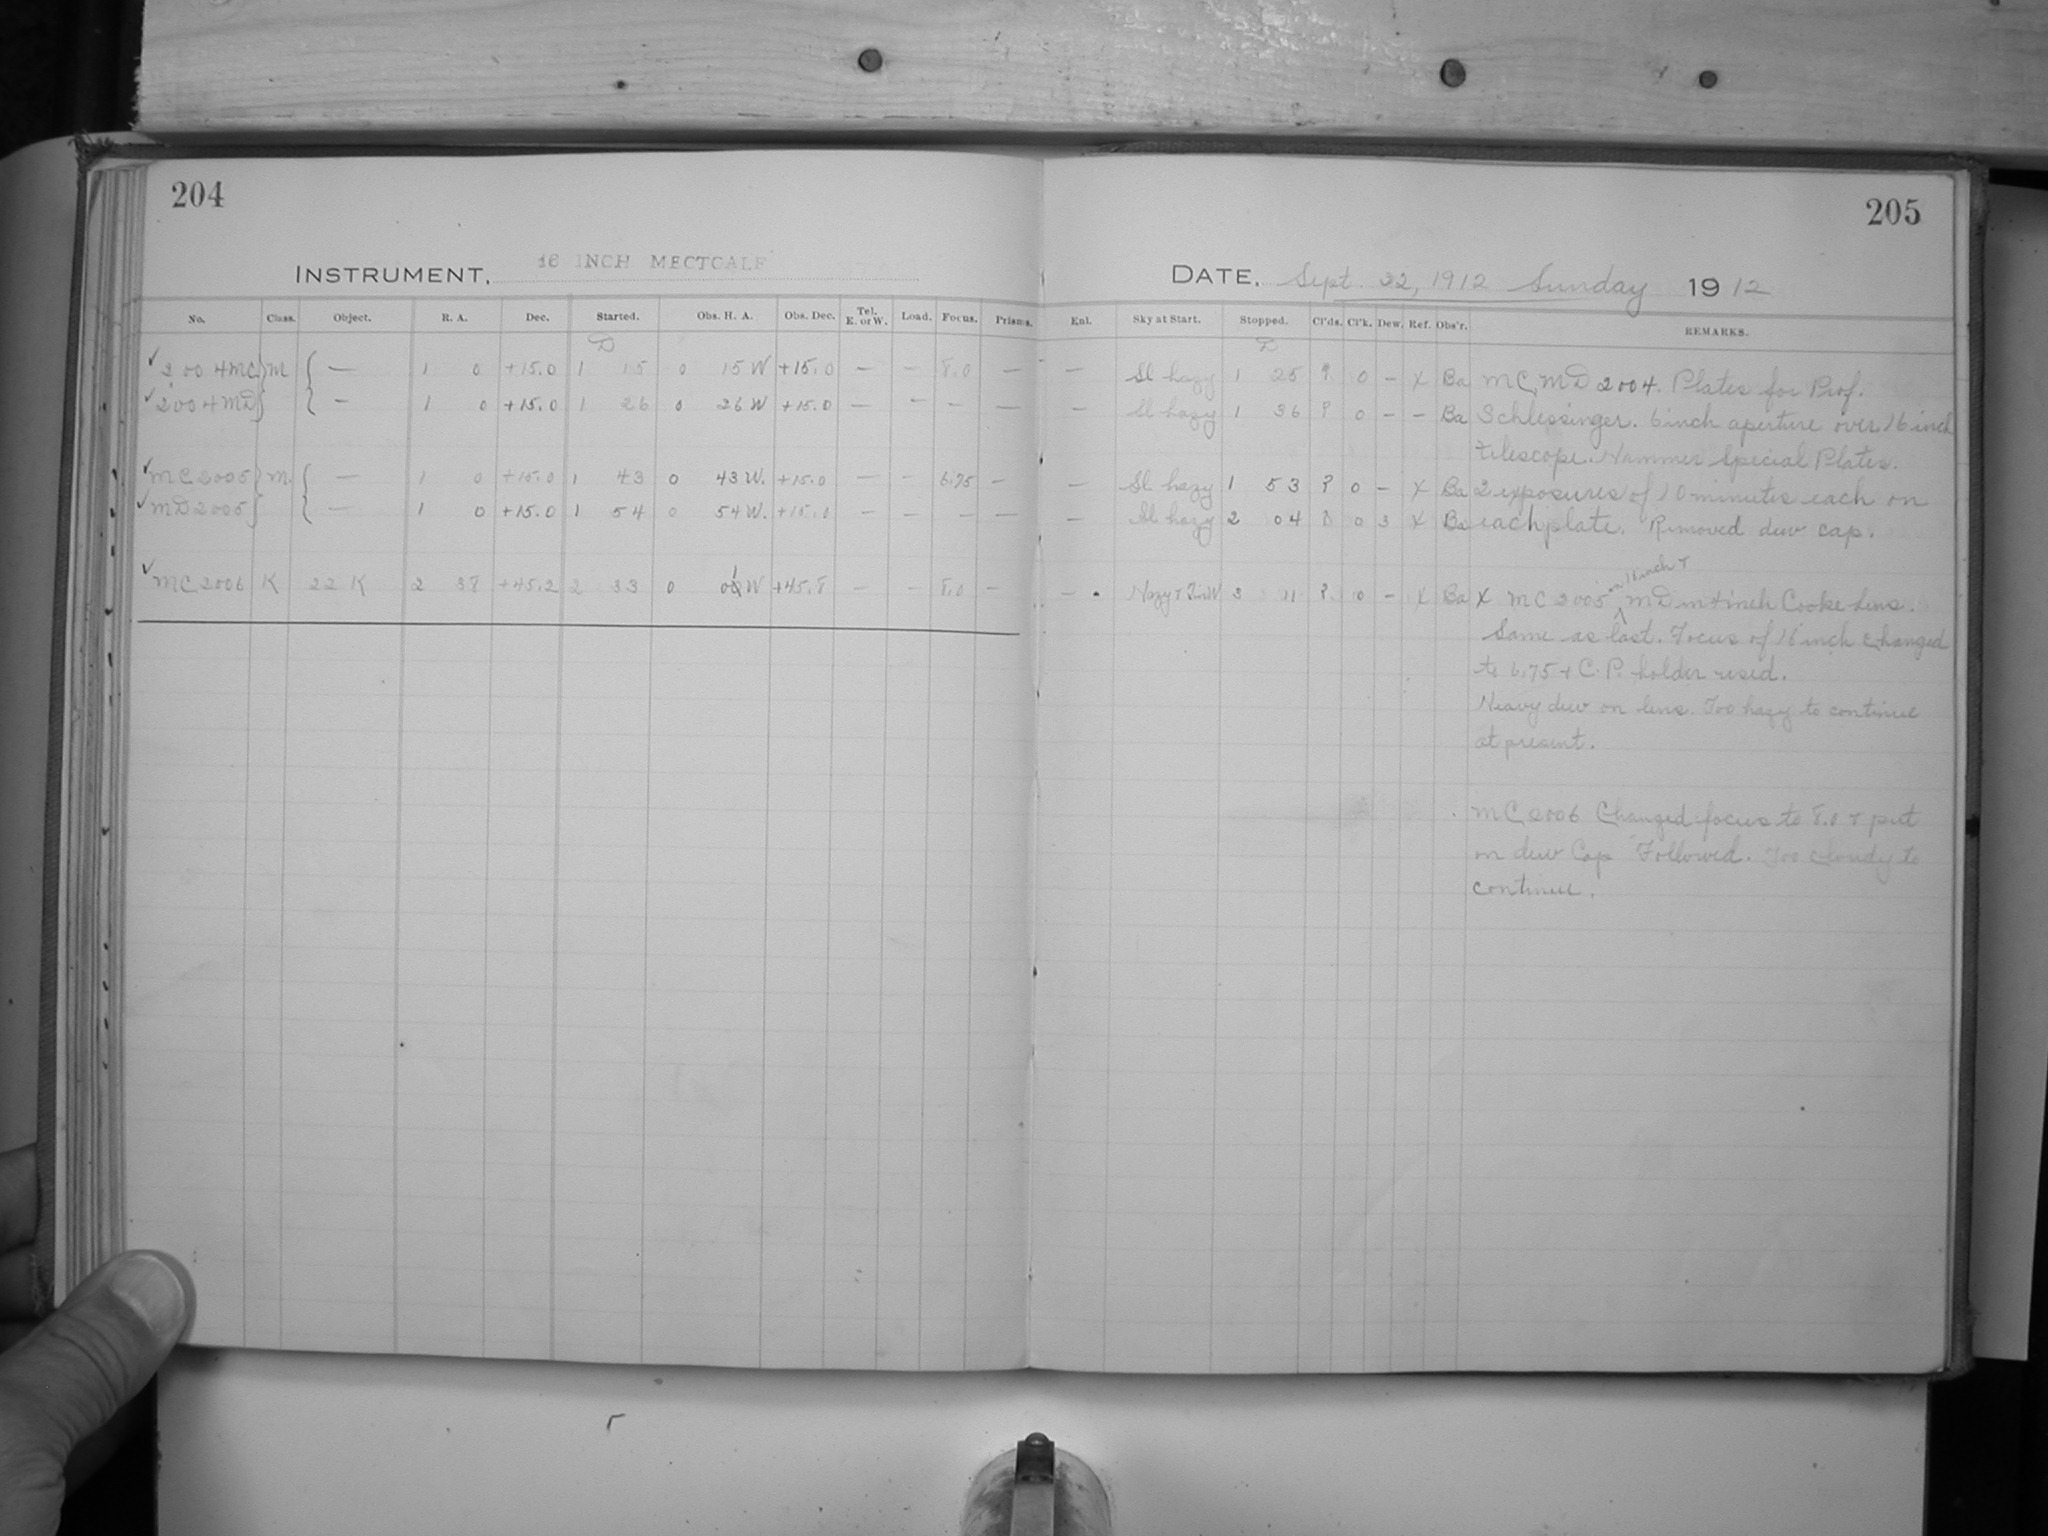 204
INSTRUMENT, 16 INCH MECTCALF
No. Class. Object. R. A. Dec. Started. Obs. H. A. Obs. Dec. Tel. E. or W. Load. Focus. Prisms.
✓ 2004 MC } M { — 1 0 +15.0 1 15 0 15 W +15.0 — — 8.0 —
✓ 2004 MD } { — 1 0 +15.0 1 26 0 26 W +15.0 — — — —
✓ MC 2005 } M { — 1 0 +15.0 1 43 0 43 W. +15.0 — — 6.75 —
✓ MD 2005 } { — 1 0 +15.0 1 54 0 54 W. +15.0 — — — —
✓ MC 2006 K 22 K 2 38 +45.2 2 33 0 W +45.8 — — 8.0 —
205
DATE, Sept. 22, 1912 Sunday 1912
Enl. Sky at Start. Stopped. Cl'ds. Cl'k. Dew. Ref. Obs'r. REMARKS.
— Sl hazy 1 25 ? 0 – X Ba MC, MD 2004. Plates for Prof.
— Sl hazy 1 36 ? 0 – – Ba Schlessinger. 6 inch aperture over 16 inch
telescope. Hammer Special Plates.
— Sl hazy 1 53 ? 0 – X Ba 2 exposures of 10 minutes each on
— Sl hazy 2 04 0 3 X Ba each plate. Removed dew cap.
on 16 inch +
— Hazy + 3 11 ? 0 – X Ba X MC 2005 MD on 4 inch Cooke Lens.
Same as last. Focus of 16 inch changed
to 6.75 + C.P. holder used.
Heavy dew on lens. Too hazy to continue
at present.
MC 2006 Changed focus to 8.0 + put
on dew Cap Followed. Too cloudy to
continue.